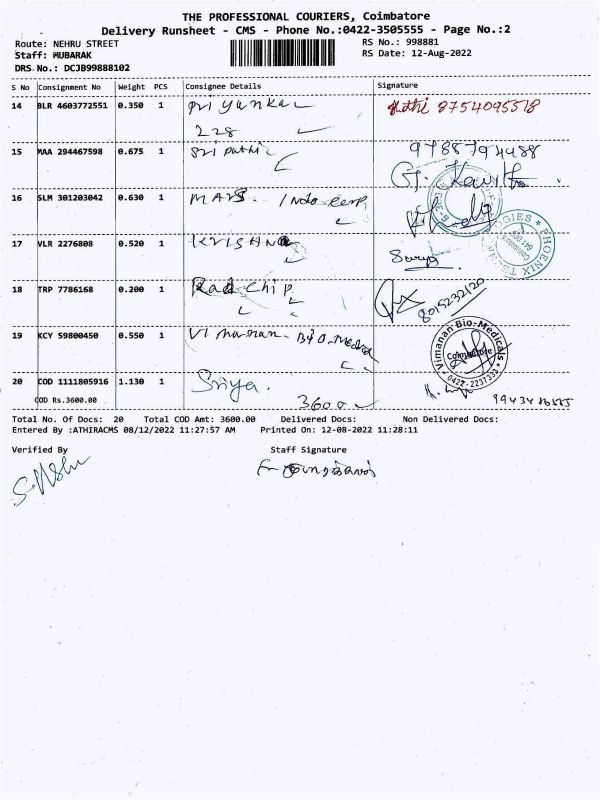 THE PROFESSIONAL COURIERS, Coimbatore
Delivery Runsheet - CMS - Phone No.:0422-3505555 - Page No.:2
Route: NEHRU STREET
RS No.: 998881
Staff: MUBARAK
RS Date: 12-Aug-2022
DRS No.: DCJB99888102
S No Consignment No Weight PCS Consignee Details Signature
14 BLR 4603772551 0.350 1 Priyanka 8754095518
228
15 MAA 294467598 0.675 1 Sri pathi 9788794488
16 SLM 301203042 0.630 1 MARS. Indo
17 VLR 2276808 0.520 1 KRISHNA Surya
PHOENIX
18 TRP 7786168 0.200 1 Rad chip 8015232120
19 KCY 59800450 0.550 1 Vimanan Bio-Medicals
Coimbatore
0422-2237333
20 COD 1111805916 1.130 1 Sriya.
COD Rs.3600.00 3600
Total No. Of Docs: 20 Total COD Amt: 3600.00 Delivered Docs: Non Delivered Docs:
Entered By :ATHIRACMS 08/12/2022 11:27:57 AM Printed On: 12-08-2022 11:28:11
Verified By Staff Signature